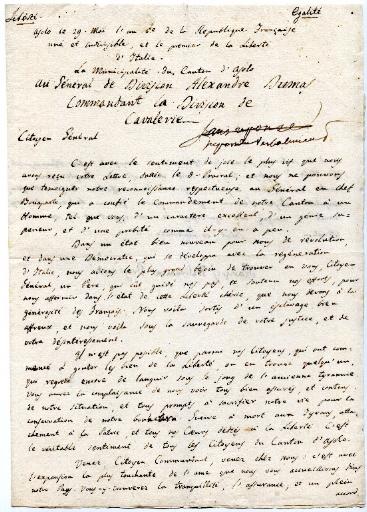 Liberté. Egalité
Asolo le 29. Mai l'an 5e de la Republique Française
une et indivisible et le premier de la liberté
d'Italie.
La Municipalité du Canton d'Asolo
Au Général de Division Alexandre Dumas
Commandant la Division de
Cavalerie
Citoyen Général
C'est avec le sentiment de joie le plus vif que nous
avons reçu votre lettre, et nous ne pouvons
que temoigner notre reconnoissance respectueuse au Général en chef
Bonaparte qui a confié le Commandement de notre Canton à un
Homme, tel que vous, d'un caractere excellent, d'un genie su-
perieur, et d'une probité comme il-y-en a peu.
Dans un état bien nouveau pour nous de révolution,
et dans une Démocratie, qui se développe avec la régénération
d'Italie, nous avions le plus grand besoin de trouver en vous, Citoyen
Général, un Pere, qui eût guidé nos pas, et soutenu nos efforts, pour
nous affermir dans l'état de cette liberté chérie, que nous devons à la
générosité des Français. Nous voilà sortis d'un esclavage bien
affreux, et nous voilà sous la sauvegarde de votre justice, et de
votre désinteressement.
Il n'est pas possible, que parmi nos Citoyens, qui ont com-
mencé à gouter les bien de la liberté, on en trouve quelqu'un,
qui regrete encore de languir sous le joug de l'ancienne tyrannie
vous aurez la complaisance de nous voir tous bien assurés et contens
de notre situation, et tous prompts à sacrifier notre vie pour la
conservation de notre bonheur. Guerre à mort aux Tyrans, atta-
chement à la Patrie, et tous nos Coeurs dediés à la Liberté c'est
le veritable sentiment de tous les Citoyens du Canton d'Asolo.
Venez Citoyen Commandant, venez chez nous: c'est avec
l'expression la plus touchante de l'ame que nous vous accueillerons dans
notre Pays. Vous-y-trouverez la tranquillité, l'assurance, et un plein
accord